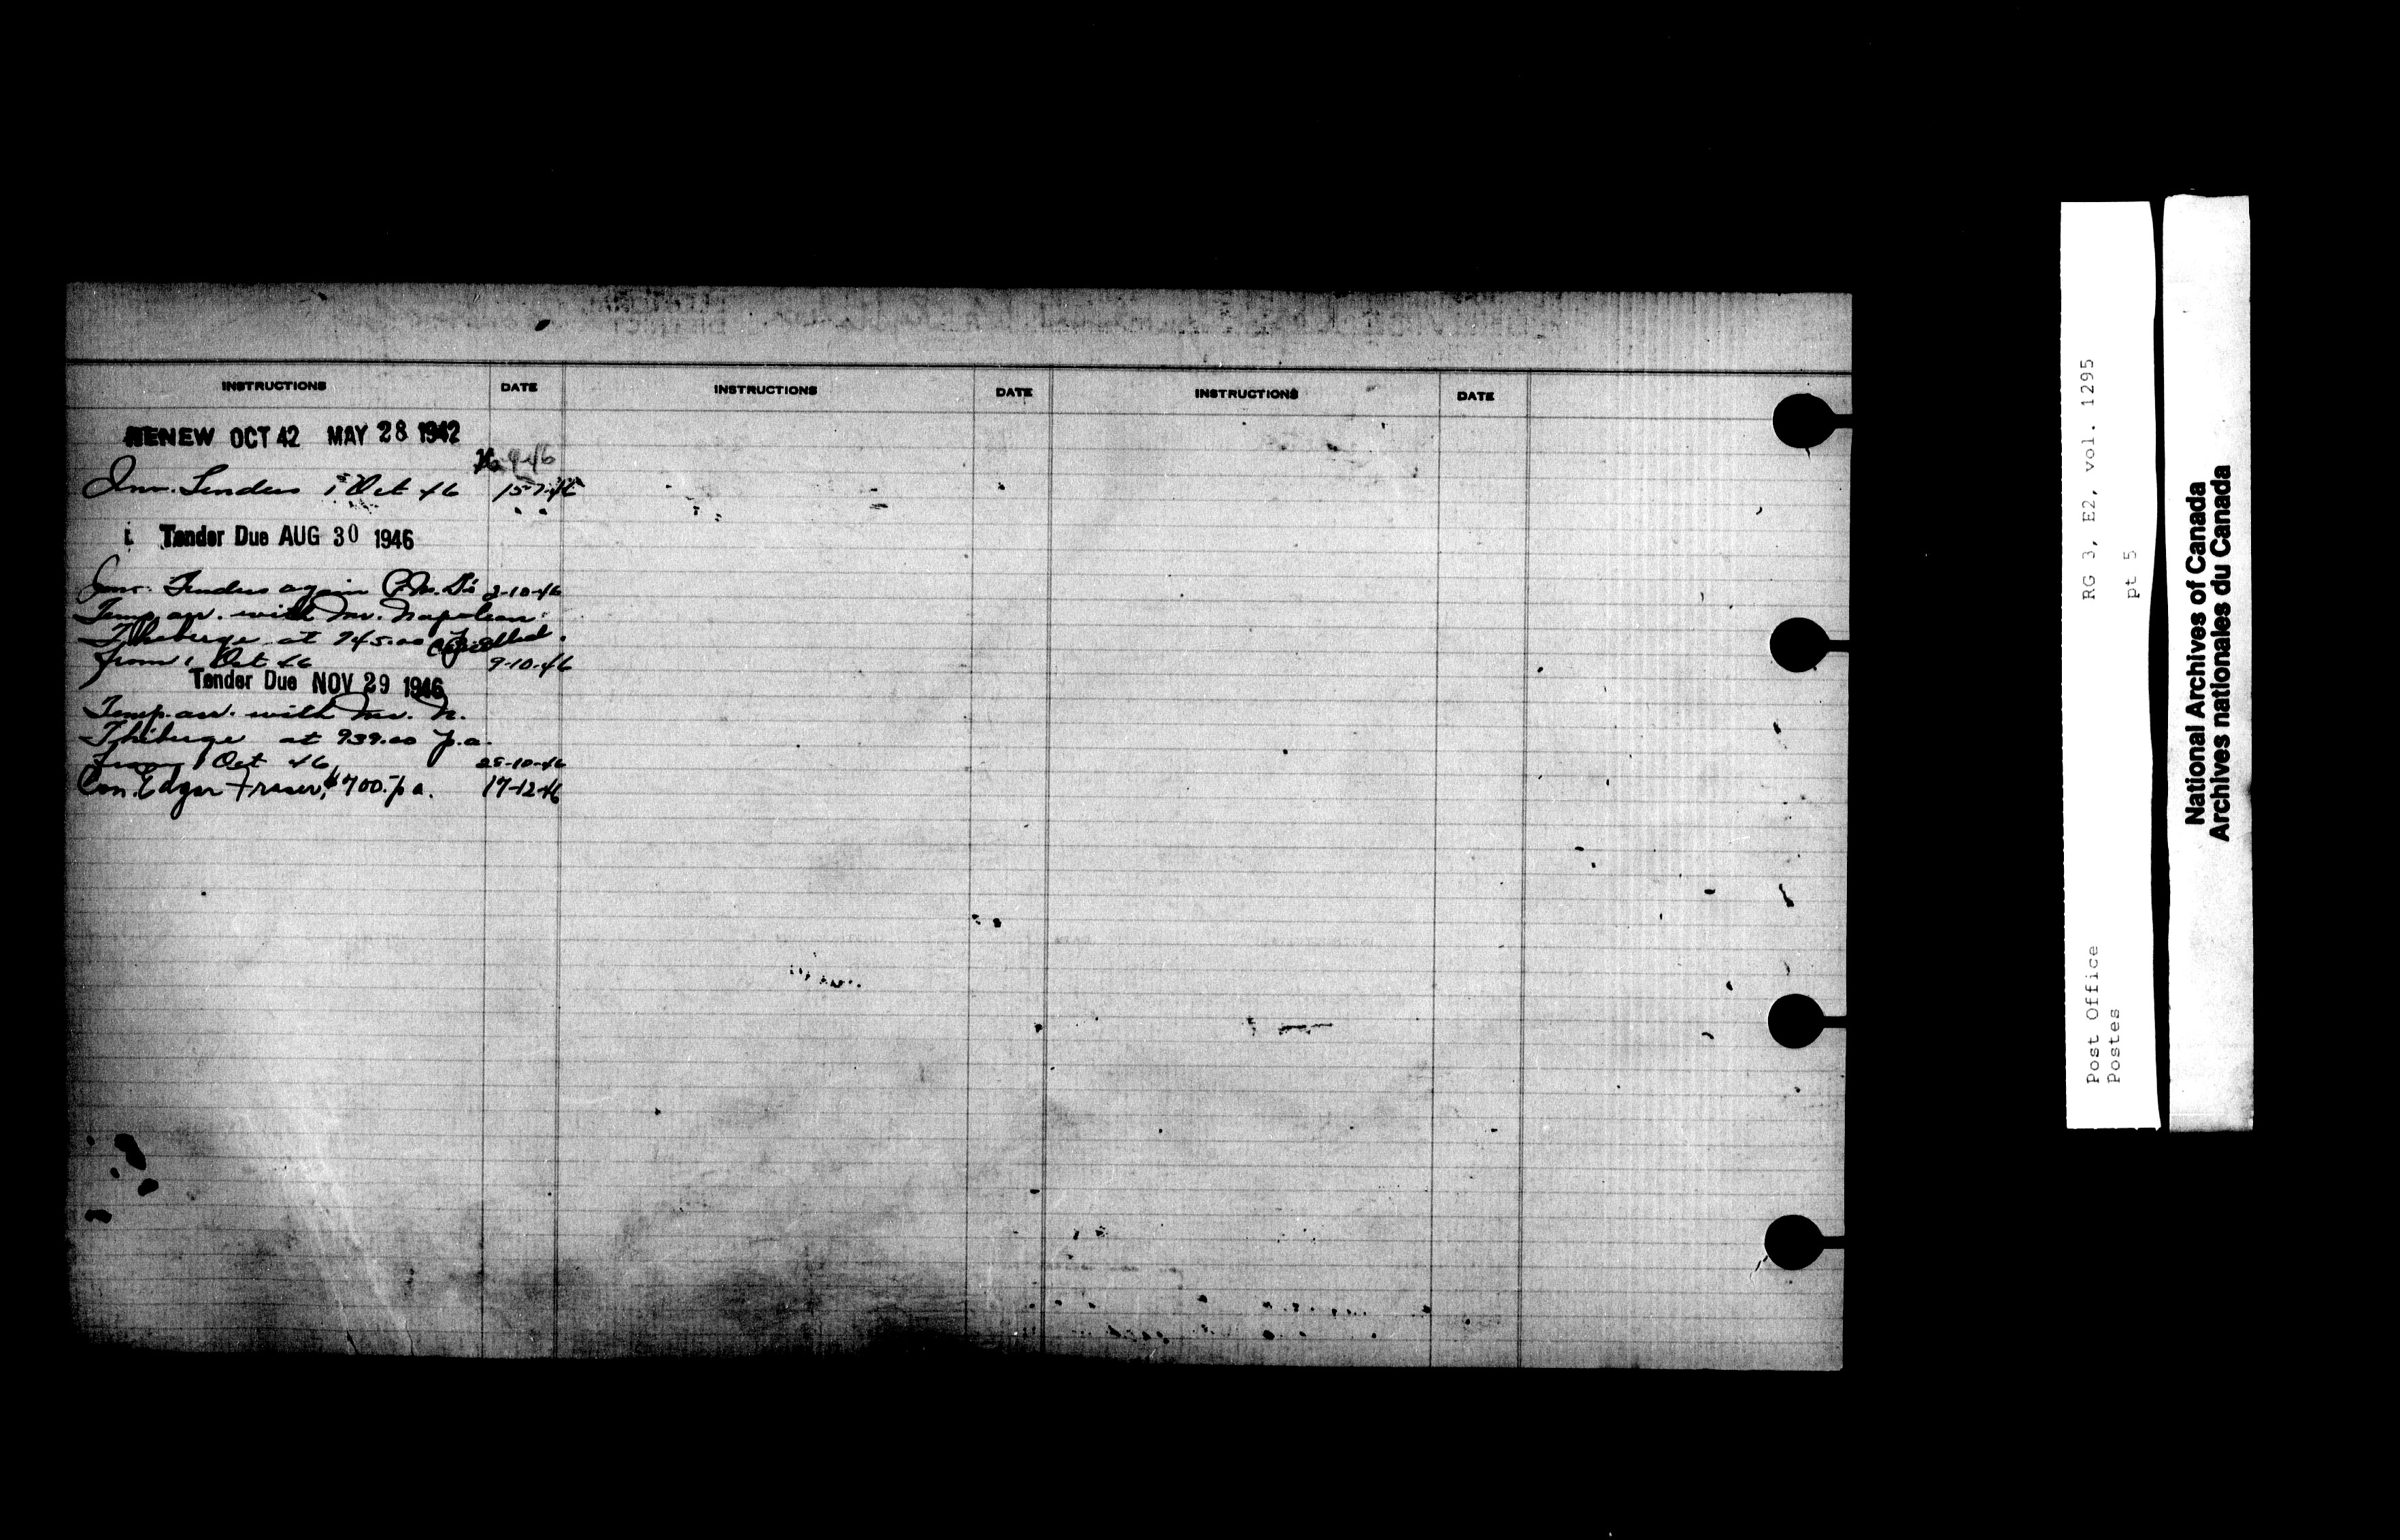 INSTRUCTIONS DATE INSTRUCTIONS DATE INSTRUCTIONS DATE
RENEW OCT 42 MAY 28 1942
Inv. Tenders 1 Oct 46 15-7-46
Tender Due AUG 30 1946
Inv. Tenders again 2-10-46
Temp. arr. with Mr. Napoleon
Thiberge at 745.00
from 1 Oct 46 9-10-46
Tender Due NOV 29 1946
Temp. arr. with Mr. N.
Thiberge at 939.00 p.a.
from 1 Oct 46 25-10-46
Con. Edgar Fraser, $700.- p.a. 17-12-46
RG 3, E2, vol. 1295
pt 5
Post Office
Postes
National Archives of Canada
Archives nationales du Canada